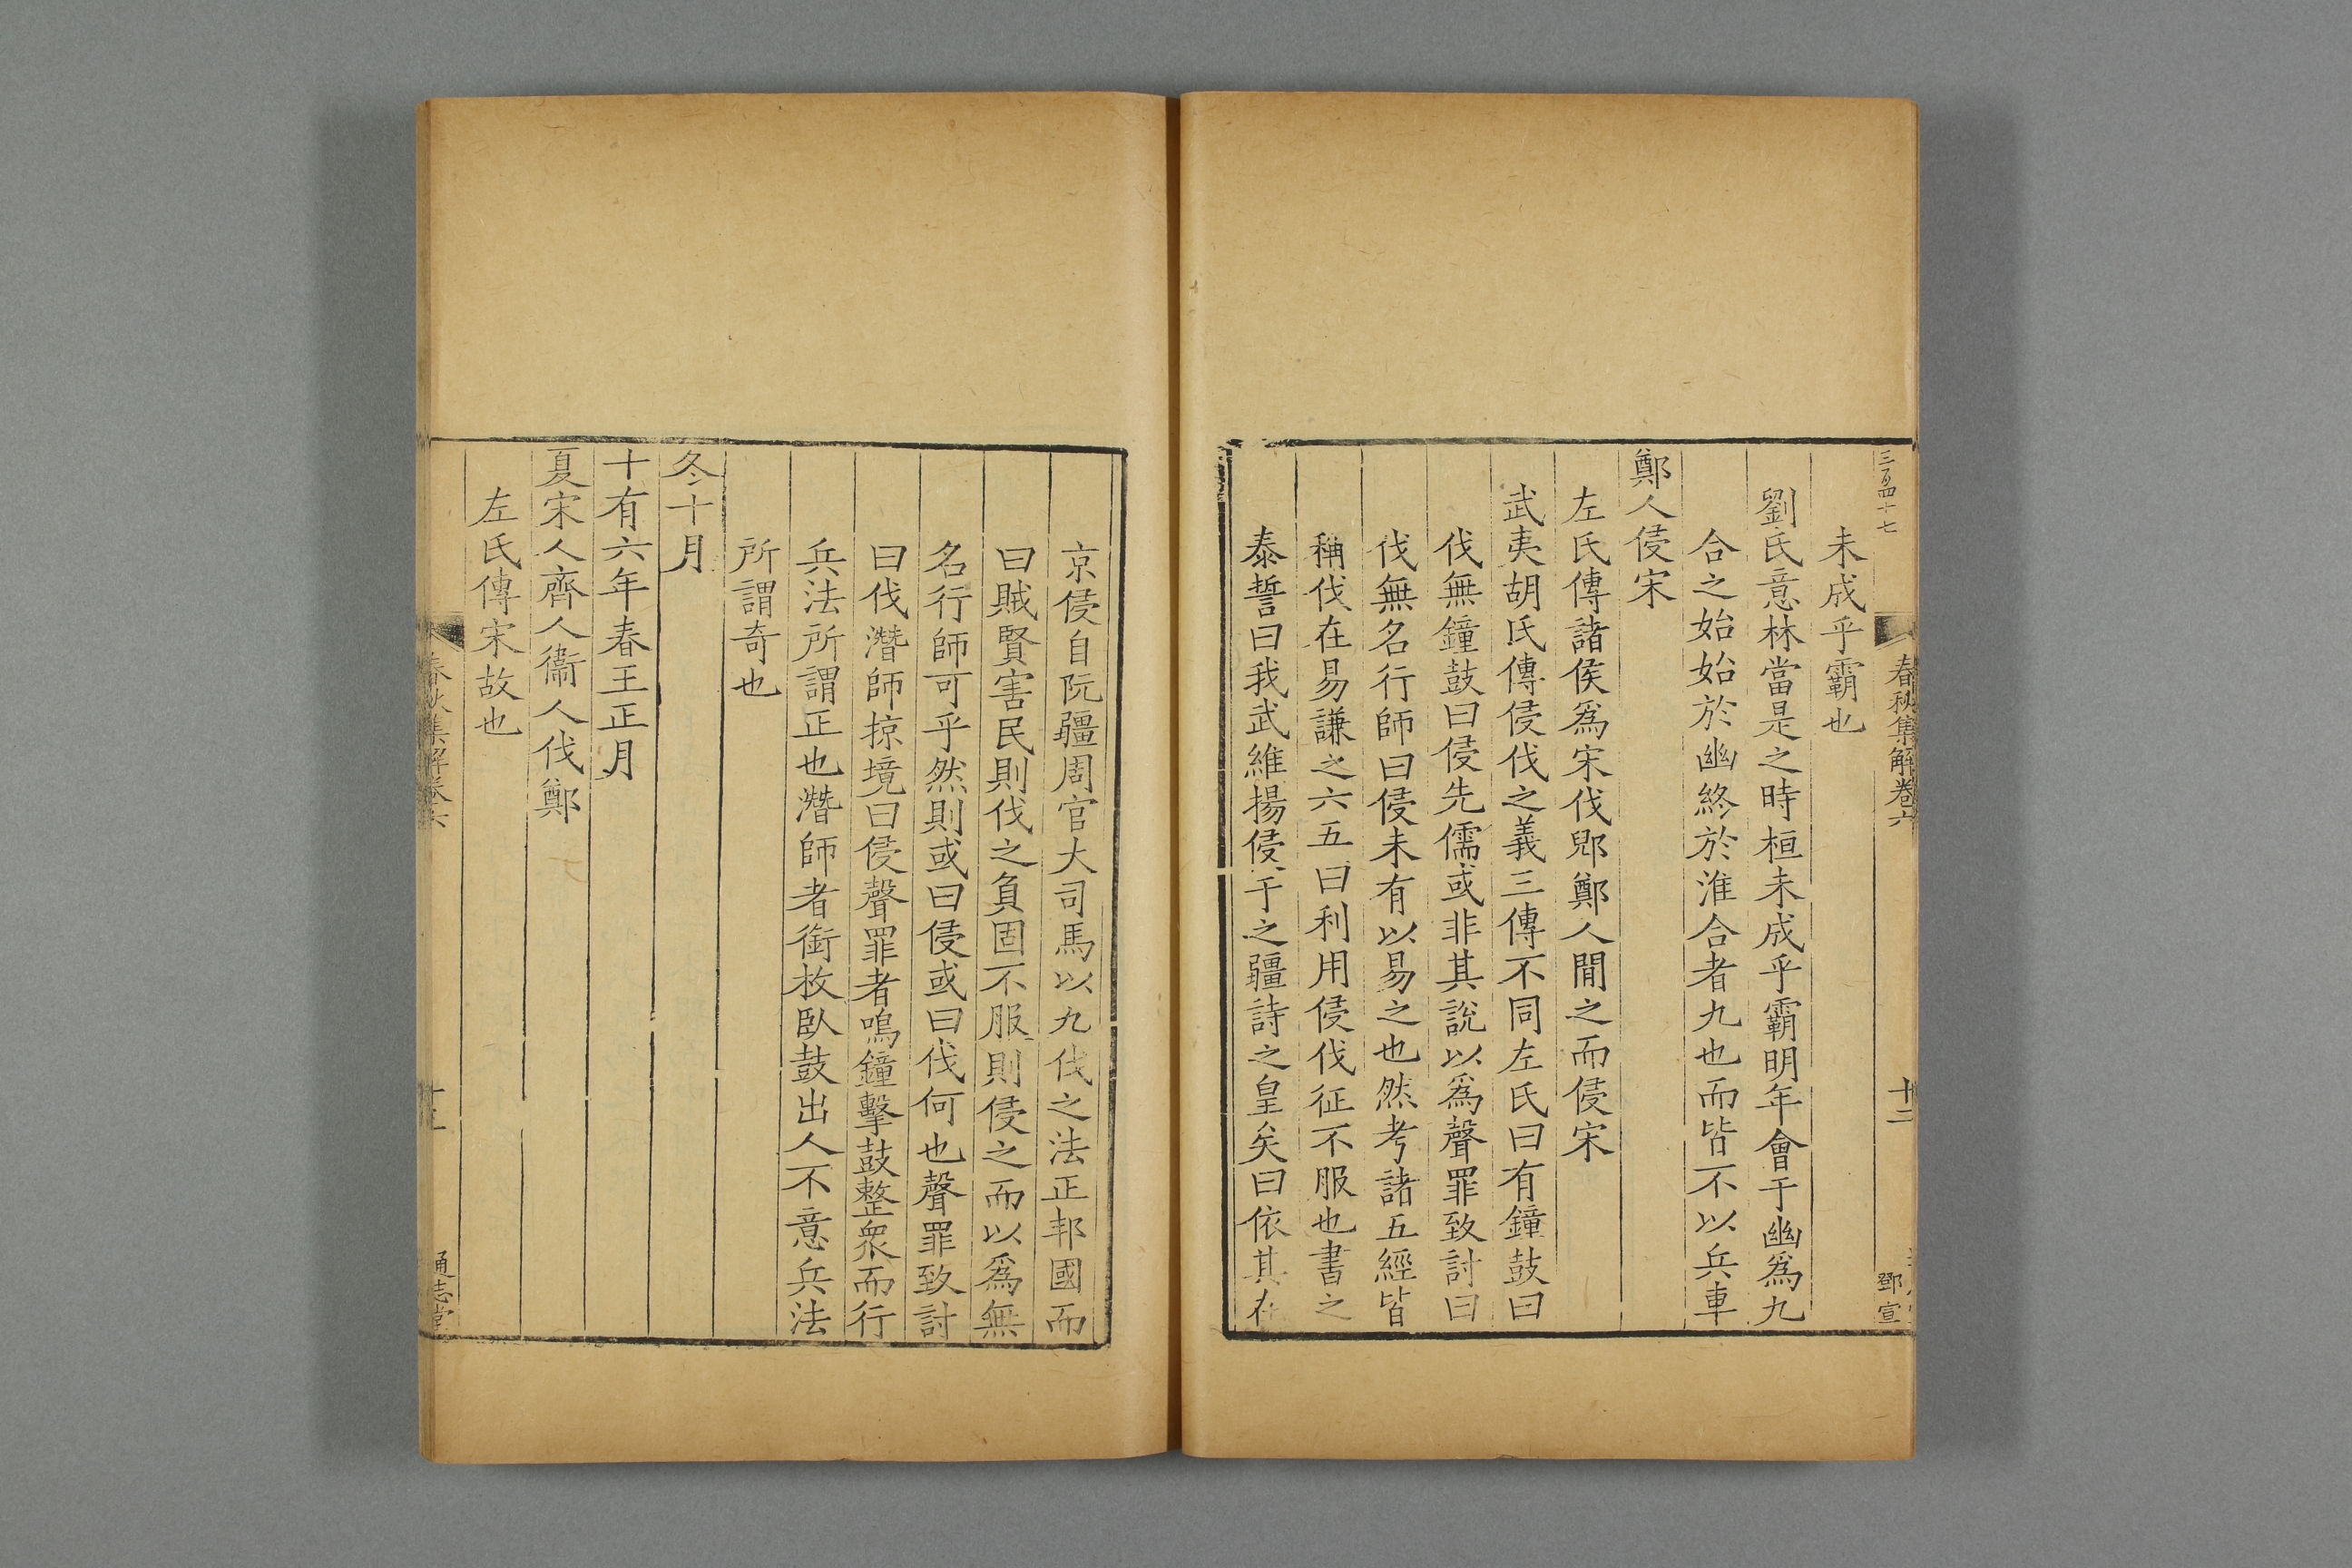 三百四十七
春秋集解卷六
十二
鄧宣
未成乎霸也
劉氏意林當是之時桓未成乎霸明年會于幽爲九
合之始始於幽終於淮合者九也而皆不以兵車
鄭人侵宋
左氏傳諸侯爲宋伐郳鄭人閒之而侵宋
武夷胡氏傳侵伐之義三傳不同左氏曰有鐘鼓曰
伐無鐘鼓曰侵先儒或非其說以爲聲罪致討曰
伐無名行師曰侵未有以易之也然考諸五經皆
稱伐在易謙之六五曰利用侵伐征不服也書之
泰誓曰我武維揚侵于之疆詩之皇矣曰依其在
京侵自阮疆周官大司馬以九伐之法正邦國而
曰賊賢害民則伐之負固不服則侵之而以爲無
名行師可乎然則或曰侵或曰伐何也聲罪致討
曰伐潛師掠境曰侵聲罪者鳴鐘擊鼓整衆而行
兵法所謂正也潛師者銜枚臥鼓出人不意兵法
所謂奇也
冬十月
十有六年春王正月
夏宋人齊人衞人伐鄭
左氏傳宋故也
春秋集解卷六
通志堂